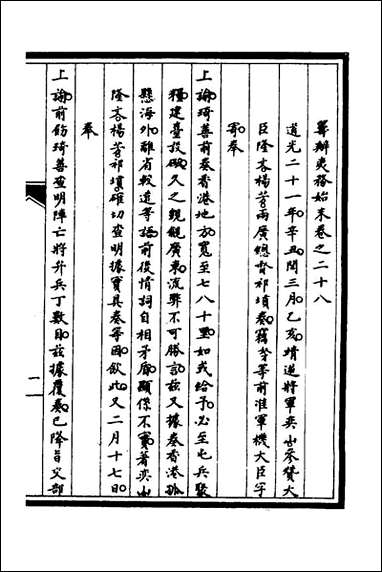 籌辦夷務始末卷之二十八
道光二十一年辛丑閏三月乙亥靖逆將軍奕山參贊大
臣隆文楊芳兩廣總督祁𡎴奏竊臣等前准軍機大臣字
寄奉
上諭琦善前奏香港地方寬至七八十里如或給予必至屯兵聚
糧建臺設礮久之覬覦廣東流弊不可勝言茲又據奏香港孤
懸海外離省較遠等語前後情詞自相矛盾顯係不實著奕山
隆文楊芳祁𡎴確切查明據實具奏等因欽此又二月十七日
奉
上諭前飭琦善查明陣亡將弁兵丁數目茲據覆奏已降旨交部
一